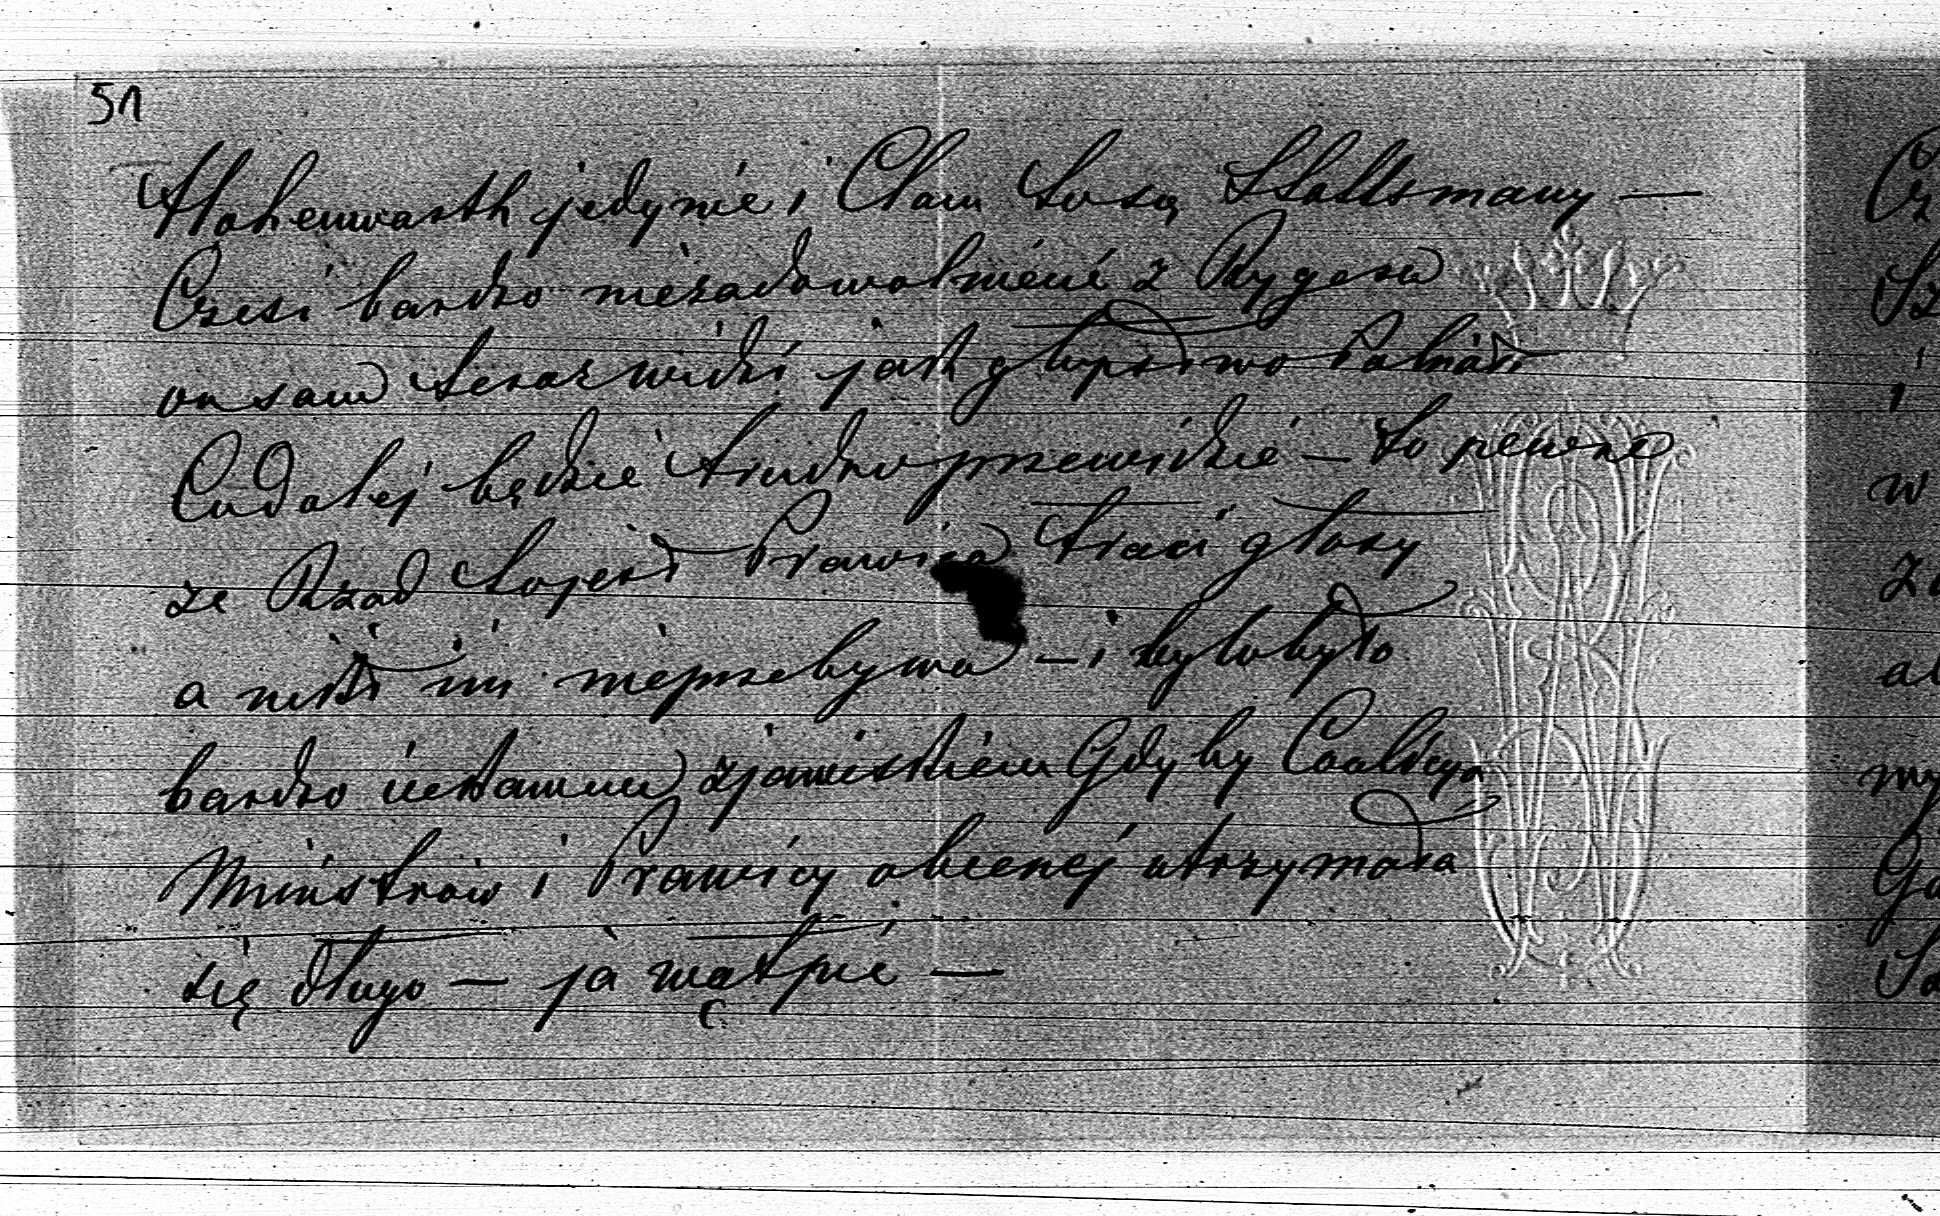 51
Hohenwarth jedynie i Clam to są Staatsmany —
Czesi bardzo niezadowolnieni z Rygera
on sam teraz widzi jak głupstwo
Co dalej będzie trudno przewidzie — to pewne
ze Rząd to jest Prawica traci głosy
a nikt im nieprzebywa — i byłoby to
bardzo zjawiskiem Gdyby Coalicya
Ministrow i Prawicy obecnej utrzymała
się długo — ja wątpie —